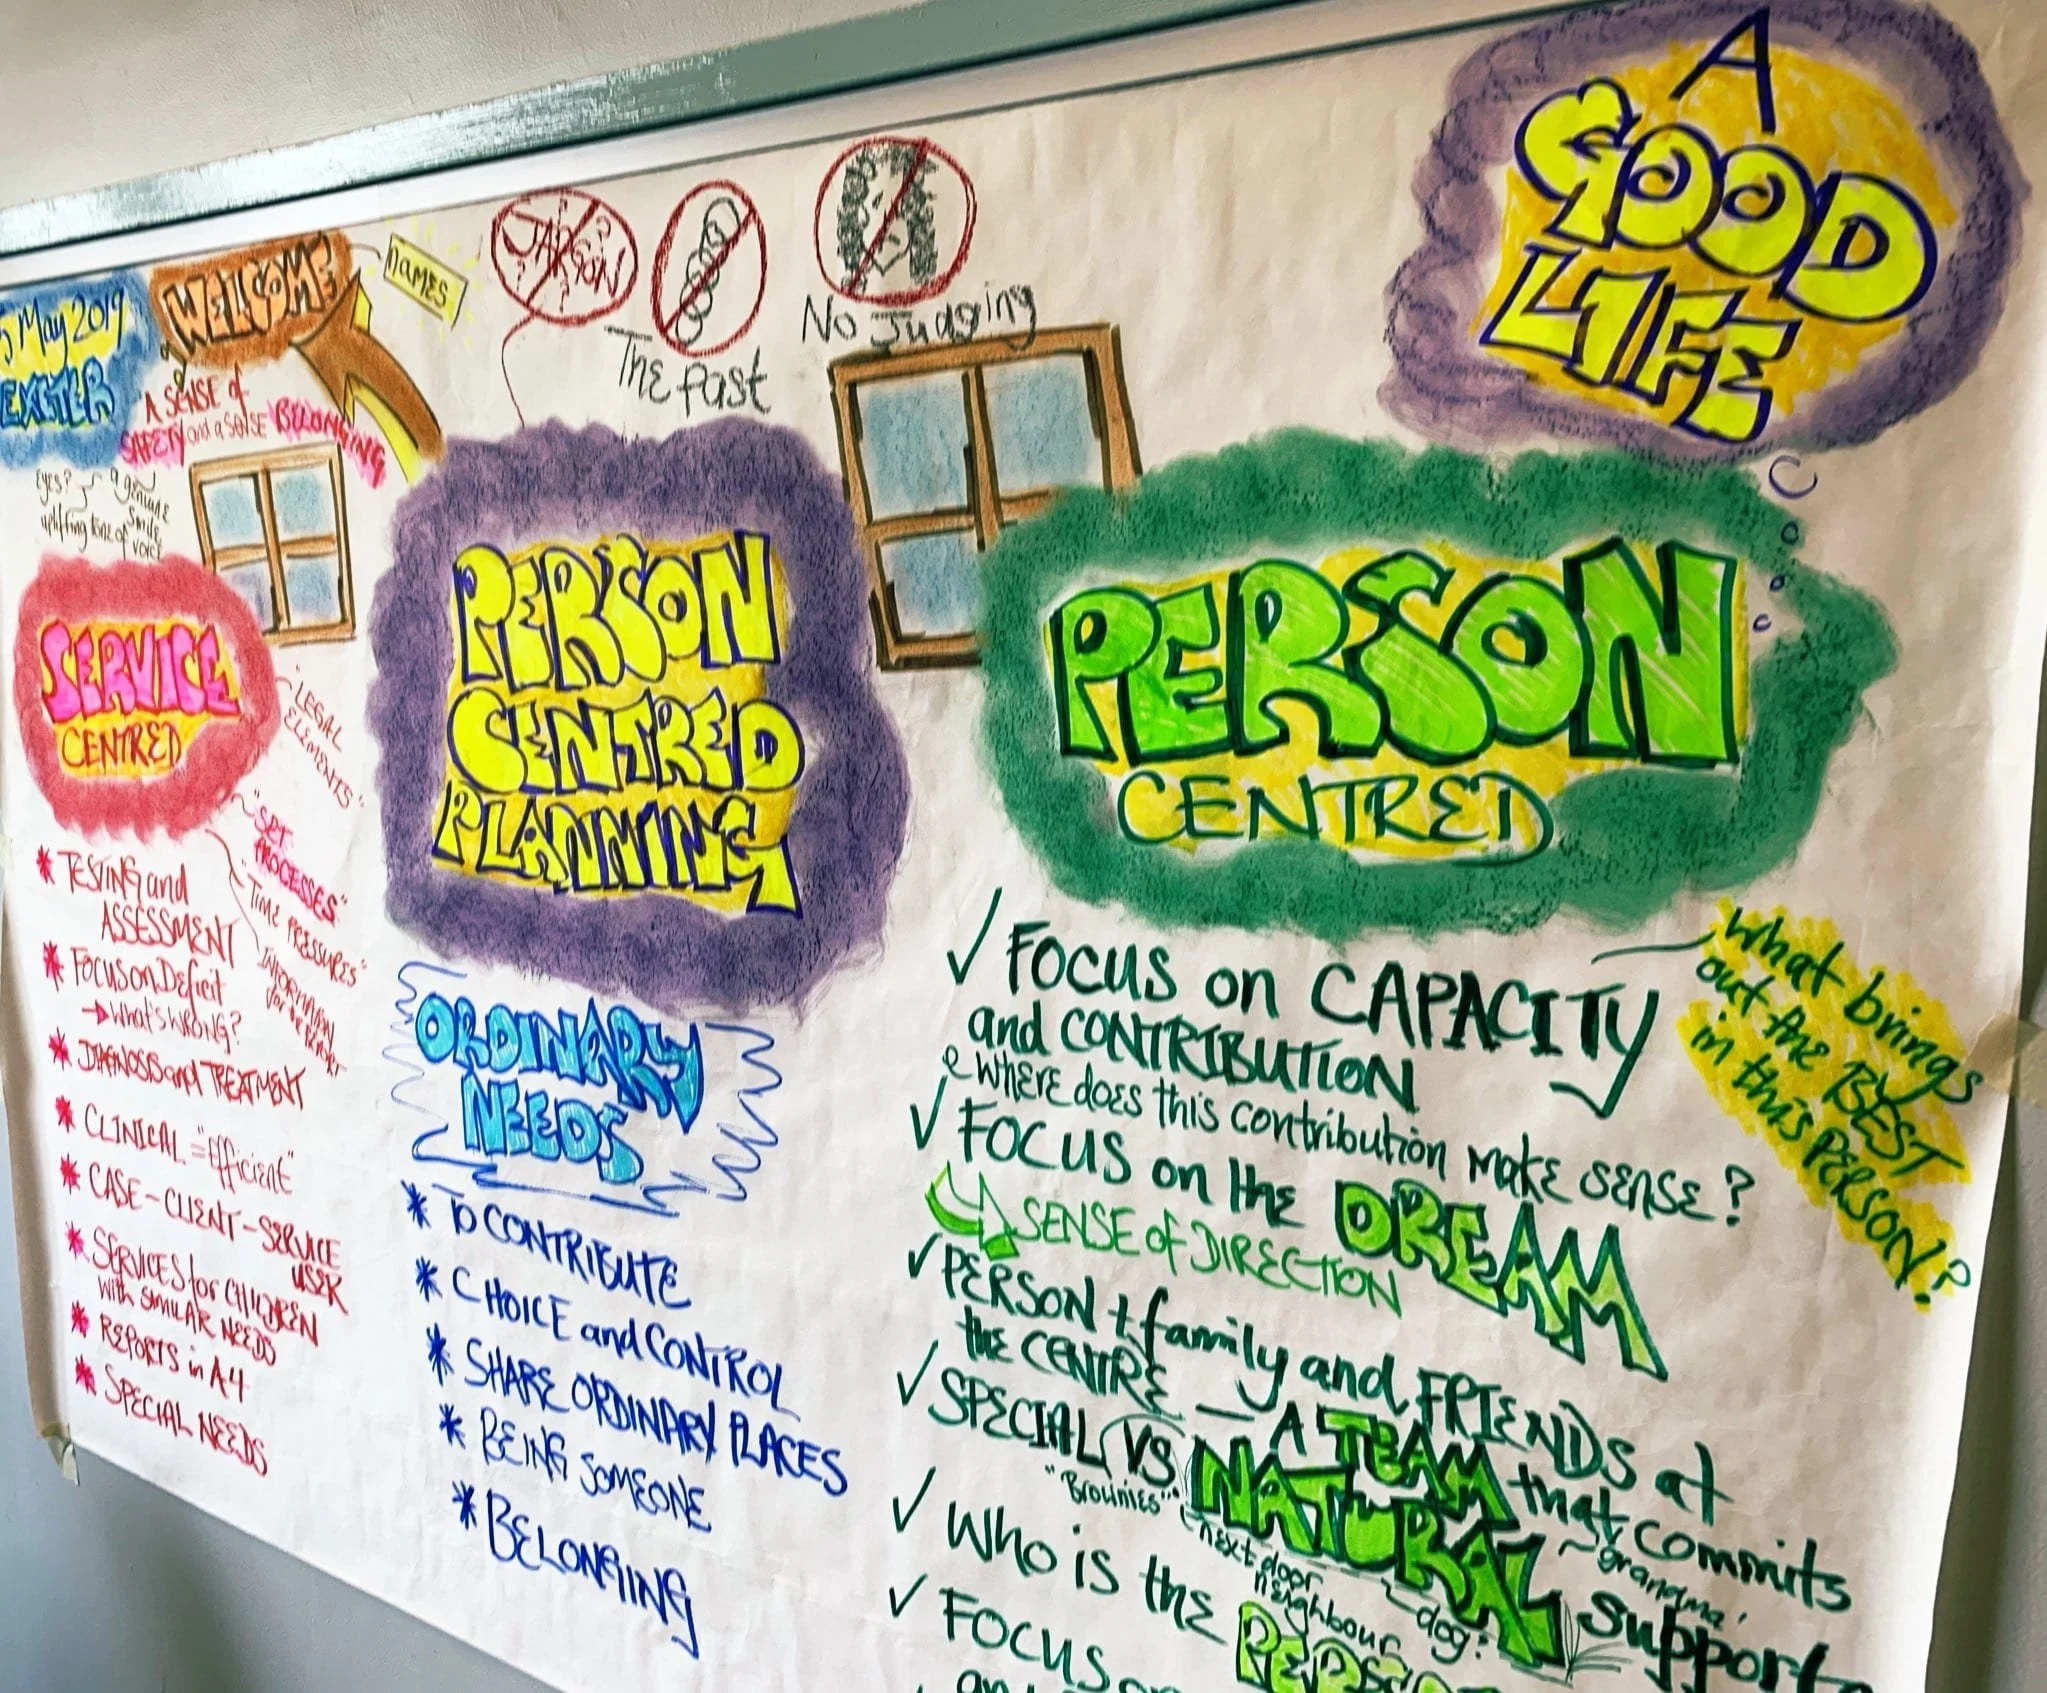 May 2019
EXETER
WELCOME
NAMES
A SENSE of
SAFETY and a SENSE BELONGING
Eyes?
a genuine
smile
uplifting tone of voice
JARGON
The Past
No Judging
A
GOOD
LIFE
SERVICE
CENTRED
"LEGAL
ELEMENTS"
"SET
PROCESSES"
"TIME PRESSURES"
INFORMATION
for REPORT
* TESTING and
ASSESSMENT
* FOCUS ON DEFICIT
→ What's WRONG?
* DIAGNOSIS and TREATMENT
* CLINICAL = "Efficient"
* CASE - CLIENT - SERVICE
USER
* SERVICES for CHILDREN
With SIMILAR NEEDS
* REPORTS in A4
* SPECIAL NEEDS
PERSON
CENTRED
PLANNING
ORDINARY
NEEDS
* TO CONTRIBUTE
* CHOICE and CONTROL
* SHARE ORDINARY PLACES
* BEING SOMEONE
* BELONGING
PERSON
CENTRED
✓ FOCUS on CAPACITY
and CONTRIBUTION
& WHERE does this contribution make sense?
What brings
out the BEST
in this PERSON?
✓ FOCUS on the DREAM
SENSE of DIRECTION
✓ PERSON + family and FRIENDS at
the CENTRE – A TEAM that commits
✓ SPECIAL VS NATURAL supports
"Brownies"
next door
neighbour
dog?
grandma
✓ Who is the PERSON
✓ FOCUS